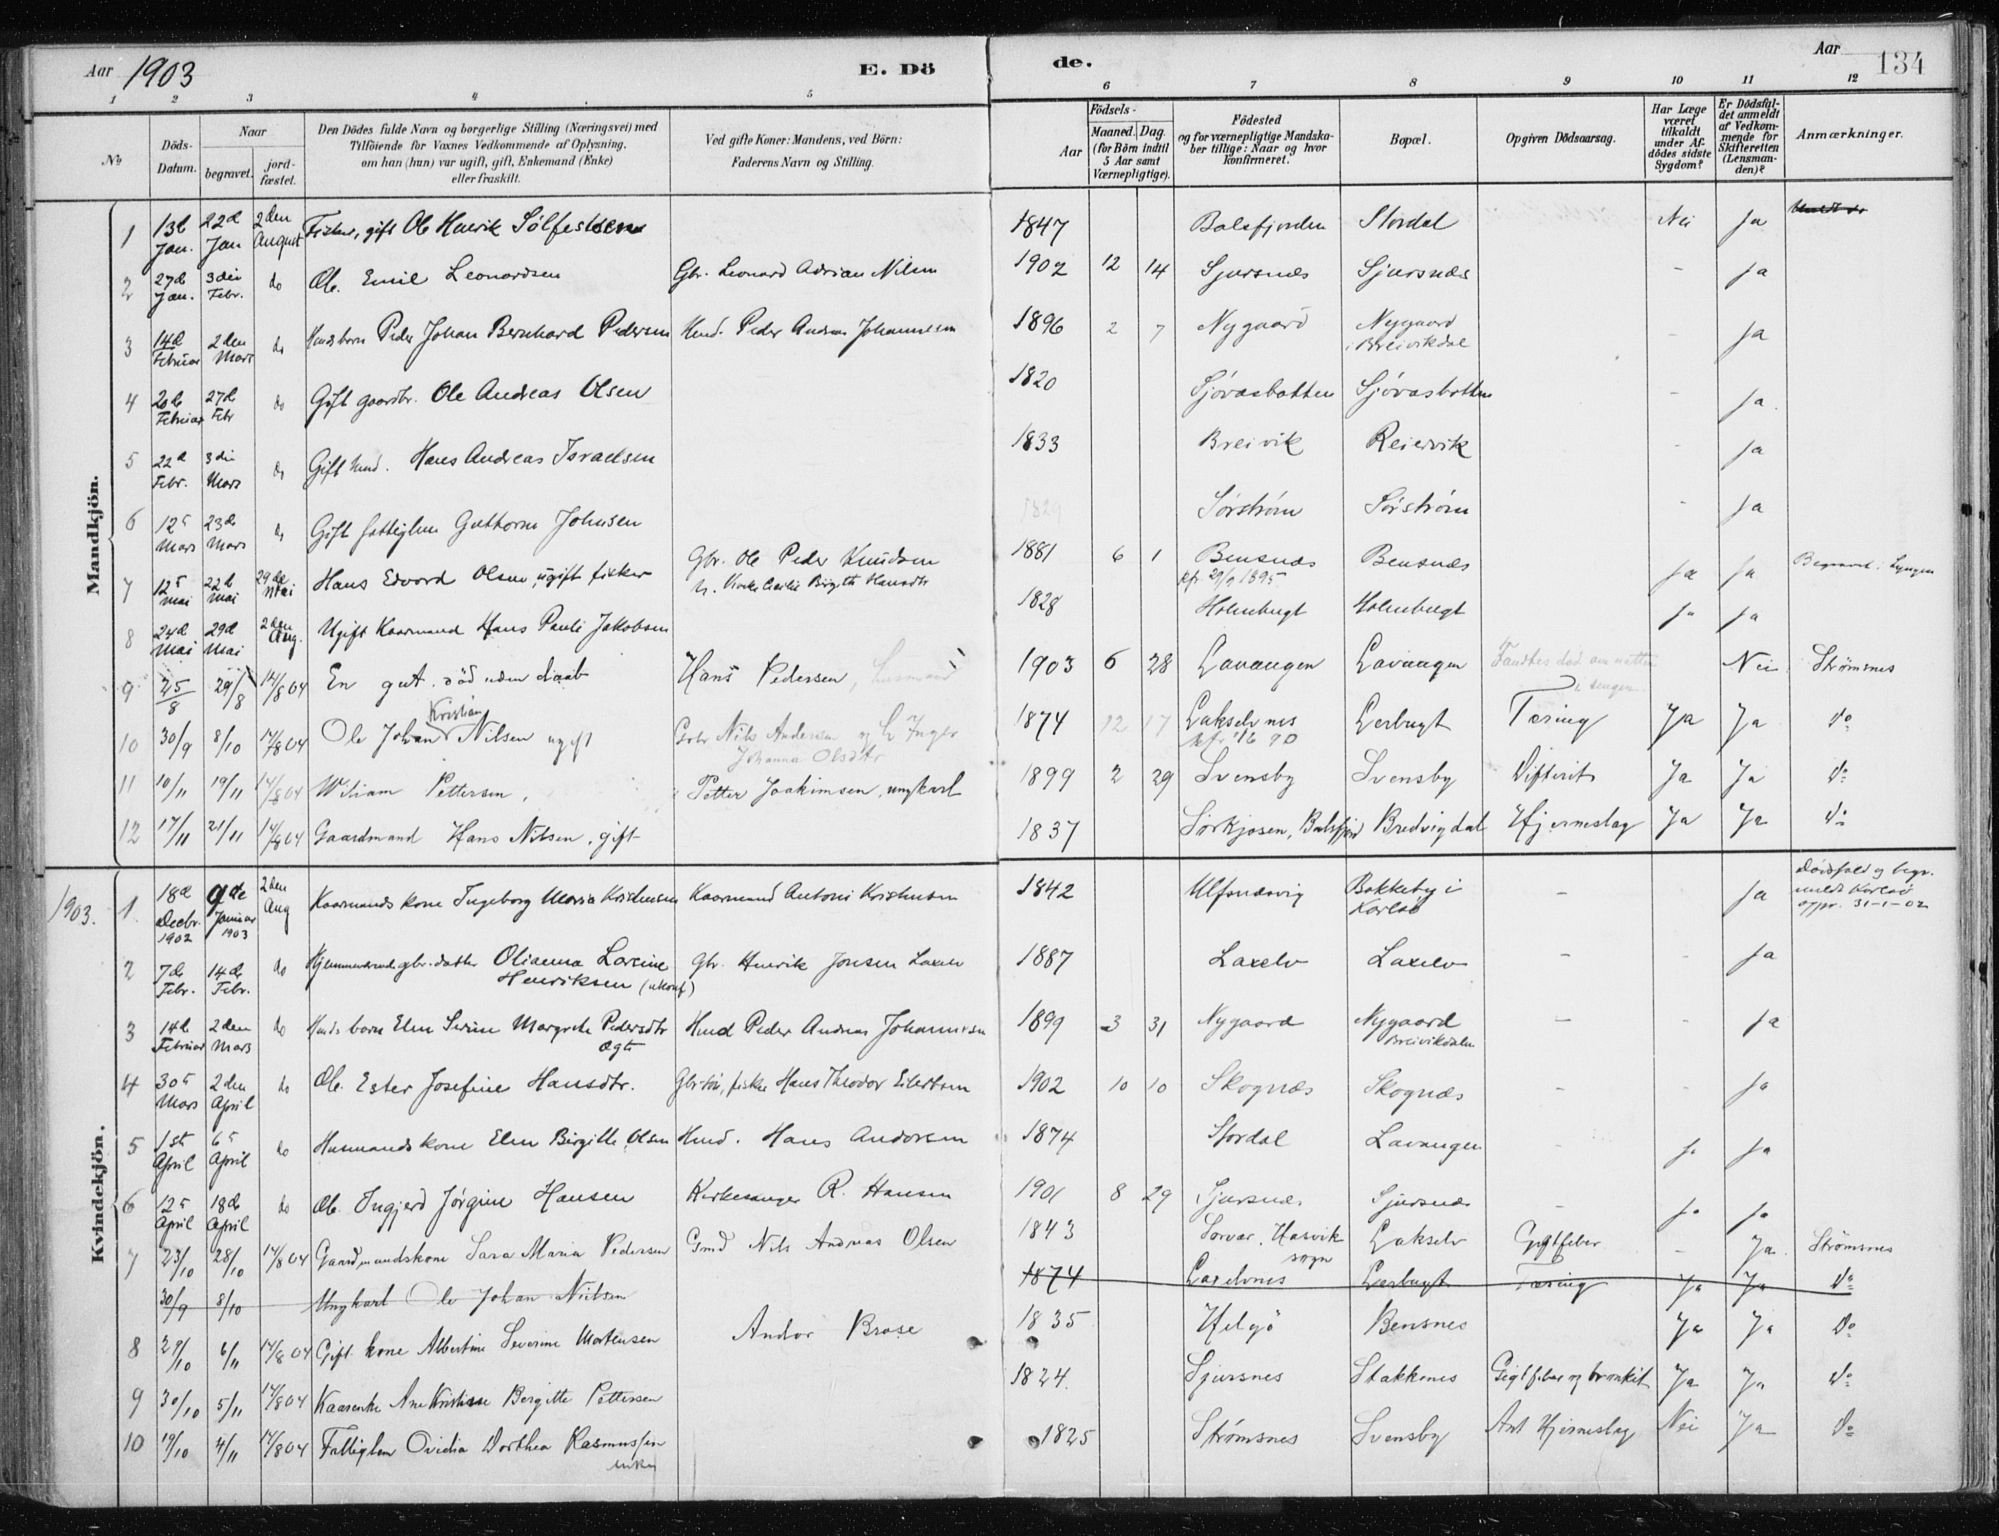 Aar 1903 E. Dö de. Aar 134
1 2 3 4 5 6 7 8 9 10 11 12
№ Döds-Datum. Naar begravet. jord-fæstet. Den Dödes fulde Navn og borgerlige Stilling (Næringsvei) med Tilföiende for Voxnes Vedkommende af Oplysning, om han (hun) var ugift, gift, Enkemand (Enke) eller fraskilt. Ved gifte Koner: Mandens, ved Börn: Faderens Navn og Stilling. Födsels- Aar Maaned. Dag. (for Börn indtil 5 Aar samt Værnepligtige). Födested og for værnepligtige Mandskaber tillige: Naar og hvor Konfirmeret. Bopæl. Opgiven Dödsaarsag. Har Læge været tilkaldt under Afdödes sidste Sygdom? Er Dödsfaldet anmeldt af Vedkommende for Skifteretten (Lensmanden)? Anmærkninger.
Mandkjön.
1 13d Jan. 22d Jan 2den August Fisker, gift Ole Henrik Sölfestsen 1847 Balsfjorden Stordal Nei Ja
2 27d Jan. 3die Febr. do Ob. Emil Leonardsen Gbr. Leonard Adrian Nilsen 1902 12 14 Sjursnæs Sjursnæs - Ja
3 14d Februar 2den Mars do Husds born Peder Johan Bernhard Pedersen Husd. Peder Andreas Johannesen 1896 2 7 Nygaard Nygaard i Breivikdal - Ja
4 20d Februar 27d Febr do Gift gaardbr. Ole Andreas Olsen 1820 Sjövasbotten Sjövasbotten - Ja.
5 22d Febr. 3die Mars do Gift husd. Hans Andreas Israelsen 1833 Breivik Reiervik - Ja
6 12t Mars 23d Mars do Gift fattiglem Guthorm Johnsen 1829 Sörström Sörström - Ja
7 12t Mai 22d Mai 29de Mai Hans Edvard Olsen, ugift fisker Gbr. Ole Peder Knudsen 1881 6 1 Bensnæs kfr. 29/9 1895 Bensnæs Ja Ja Begravet i Lyngen
8 24d Mai 29d Mai 2den Aug. Ugift Kaarmand Hans Pauli Jakobsen 1828 Holmbugt Holmbugt Ja Ja
9 25/8 29/8 14/8 04 En gut. död uden daab Hans Pedersen, husmand 1903 6 28 Lavangen Lavangen Fandtes död om natten i sengen. Nei Strømsnes
10 30/9 8/10 14/8 04 Ole Johan Kristian Nilsen ugift Gbr Nils Andersen og h. Inger Johanna Olsdtr 1874 12 17 Lakselvnes kfr. 90 Lerbugt Tæring Ja Ja do
11 10/11 19/11 14/8 04 Wiliam Pettersen, Petter Joakimsen, ungkarl 1899 2 29 Svensby Svensby Difterit Ja Ja do
12 17/11 21/11 14/8 04 Gaardmand Hans Nilsen, gift 1837 Sörkjosen, Balsfjord Bredvigdal Hjerneslag Ja Ja do
1903. Kvindekjön.
1. 18d Decbr. 1902 9de Januar 1903 2den Aug Kaarmands kone Ingeborg Maria Kristensen Kaarmand Antoni Kristensen 1842 Ulfsnæsvig Bakkeby i Karlsö - - Ja Dödsfald og begr. meldt Karlsö 31-1-02
2 7de Febr. 14de Febr. do Hjemmeværende gbr. datter Olianna Lovine Henriksen (ukonf) Gbr. Henrik Jonsen Laxelv 1887 Laxelv Laxelv - - Ja
3 14d Februar 2den Mars do Husds born Elen Serine Margrete Pedersdtr ægte Husd Peder Andreas Johannesen 1899 3 31 Nygaard Nygaard Breivikdalen - - Ja
4 30t Mars 2den April do Ob. Ester Josefine Hansdtr. Gbrsön, fisker Hans Theodor Eilertsen 1902 10 10 Skognæs Skognæs - - Ja
5 1ste April 6t April do Husmands kone Elen Birgitte Olsen Husd. Hans Andersen 1874 Stordal Lavangen - Ja Ja
6 12t April 18d April do Ob. Ingjerd Jörgine Hansen Kirkesanger R. Hansen 1901 8 29 Sjursnæs Sjursnæs - Ja Ja
7 23/10 28/10 14/8 04 Gaardmandskone Sara Maria Pedersen Gmd Nils Andreas Olsen 1843 Sorvær, Hasvik sogn Lakselv Gigtfeber - Ja. Strømsnes
30/9 8/10 Ungkarl Ole Johan Nilsen 1874 Laxelvnes Lerbugt Tæring Ja Ja do
8 29/10 6/11 14/8 04 Gift kone Albertine Severine Mortensen Andor Brose 1835 Helgö Bensnes Ja Ja Do
9 30/10 5/11 14/8 04 Kaarenke Ane Kristine Bergitte Pettersen 1824. Sjursnes Stakkenes Gigtfeber og bronkit Ja Ja do
10 19/10 4/11 14/8 04 Fattiglem Ovidia Dorthea Rasmussen enke 1825 Strømsnes Svensby Ant Hjerneslag Nei Ja do